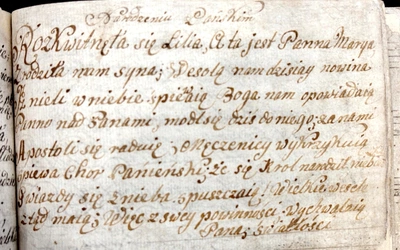 Narodzeniu Pańskim
Rozkwitnęła się Lilia, A ta jest Panna Marya
Zrodziła nam syna; Wesoła nam dzisiay nowina
Anieli w niebie spiewią Boga nam opowiadaią
Panno nad Pannami, modl się dziś do niego za nami
Apostoli się raduię, Męczenicy wykrzykuią
Spiewa Chor Panieński, że się Krol narodził
Gwiazdy się z nieba spuszczaią! Wielkie wesele
ztąd maią; Więc z swey powinnosci Wychwalaią
Pana; Swiatłości